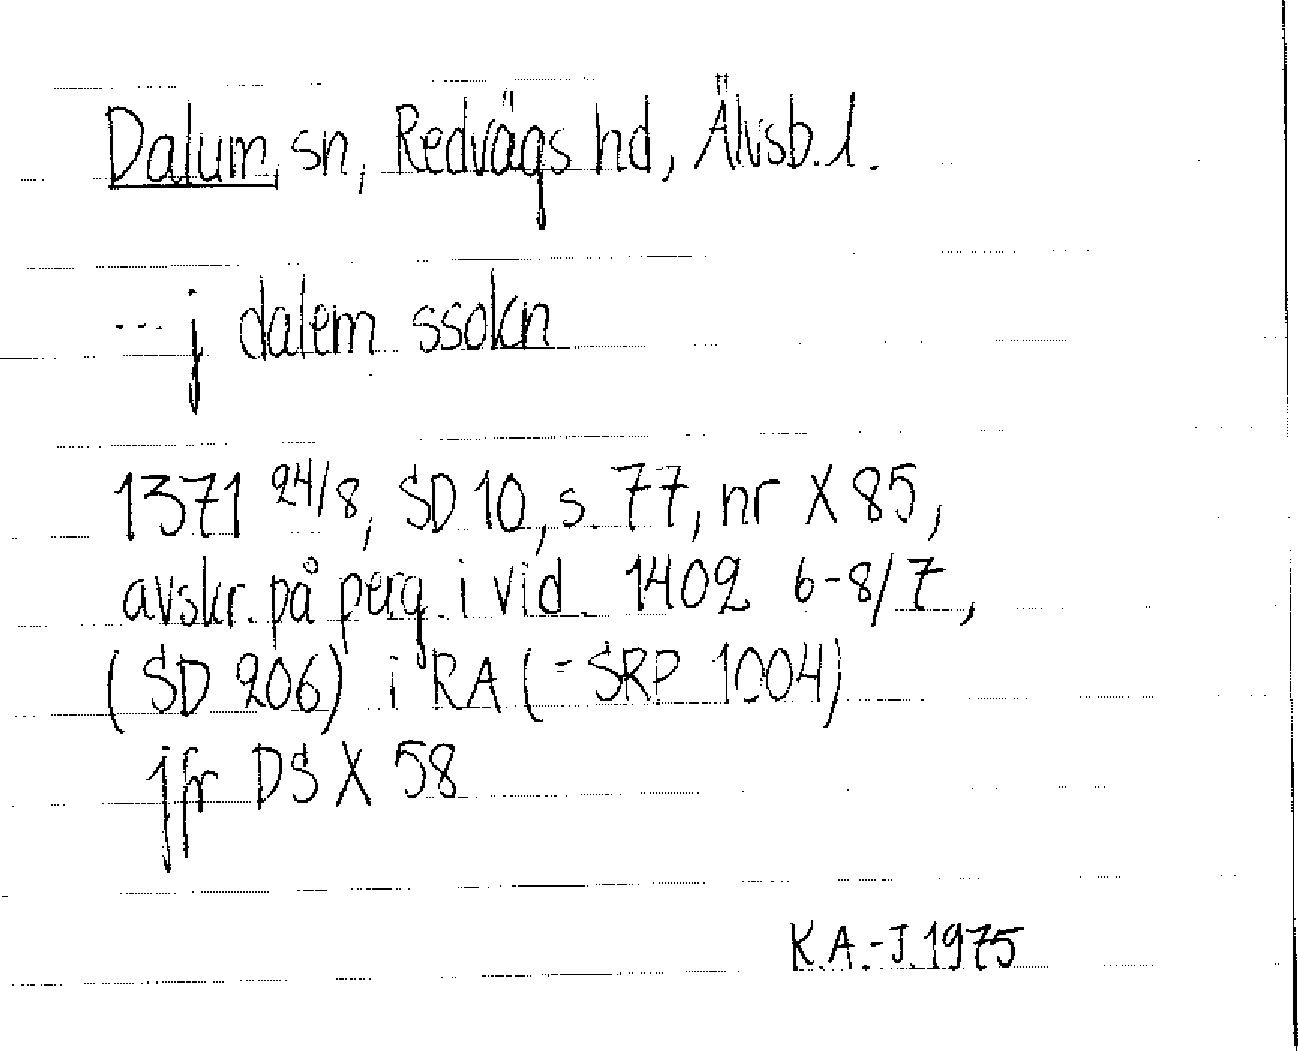 Dalum, sn, Redvägs hd, Älvsb. l.
--- j dalem ssokn
1371 24/8, SD 10, s. 77, nr X 85,
avskr. på perg. i vid. 1402 6-8/7,
(SD 206) i RA (-SRP 1004)
jfr DS X 58
K.A.-J. 1975